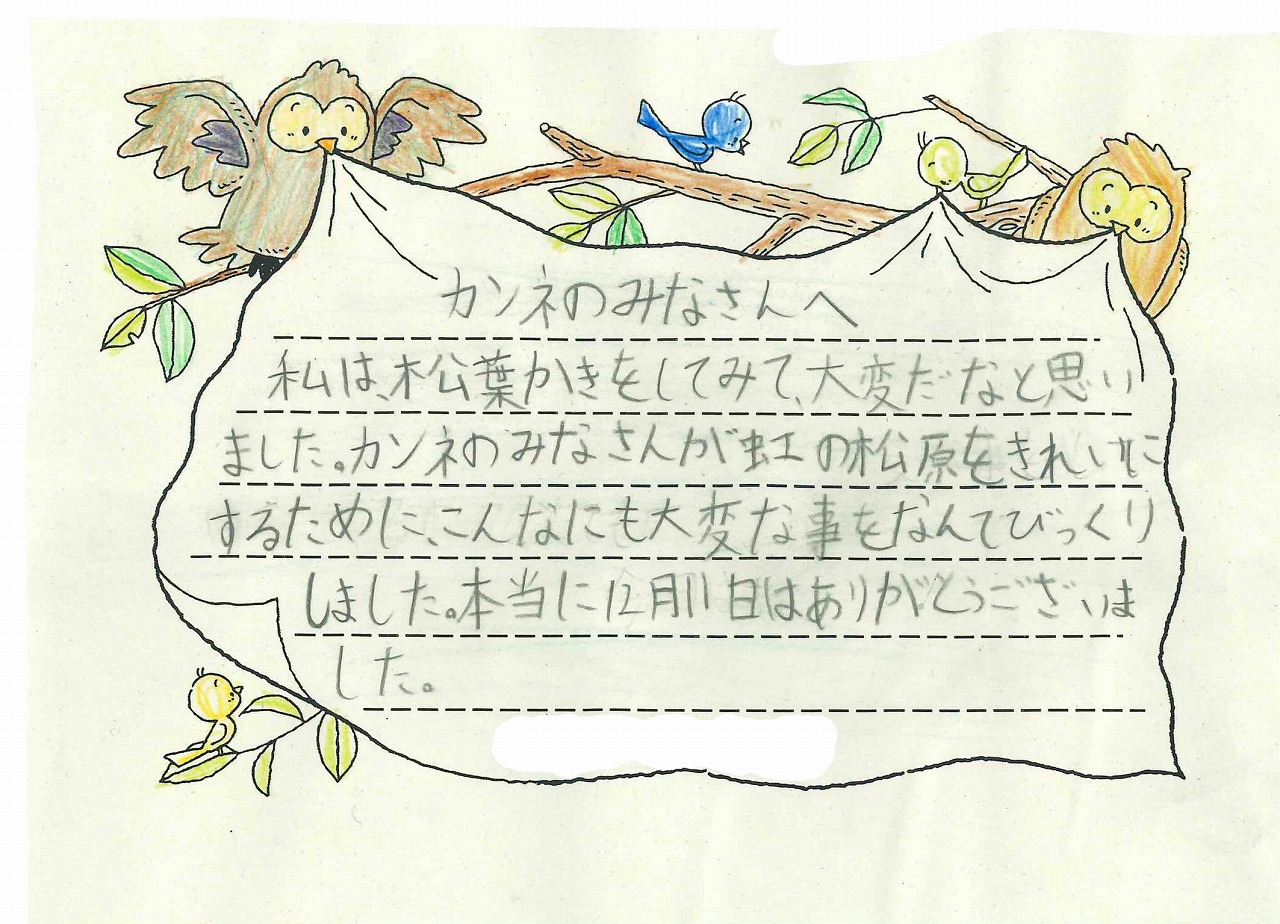 カンネのみなさんへ
私は、松葉かきをしてみて、大変だなと思い
ました。カンネのみなさんが虹の松原をきれいに
するために、こんなにも大変な事をなんてびっくり
しました。本当に12月11日はありがとうございま
した。